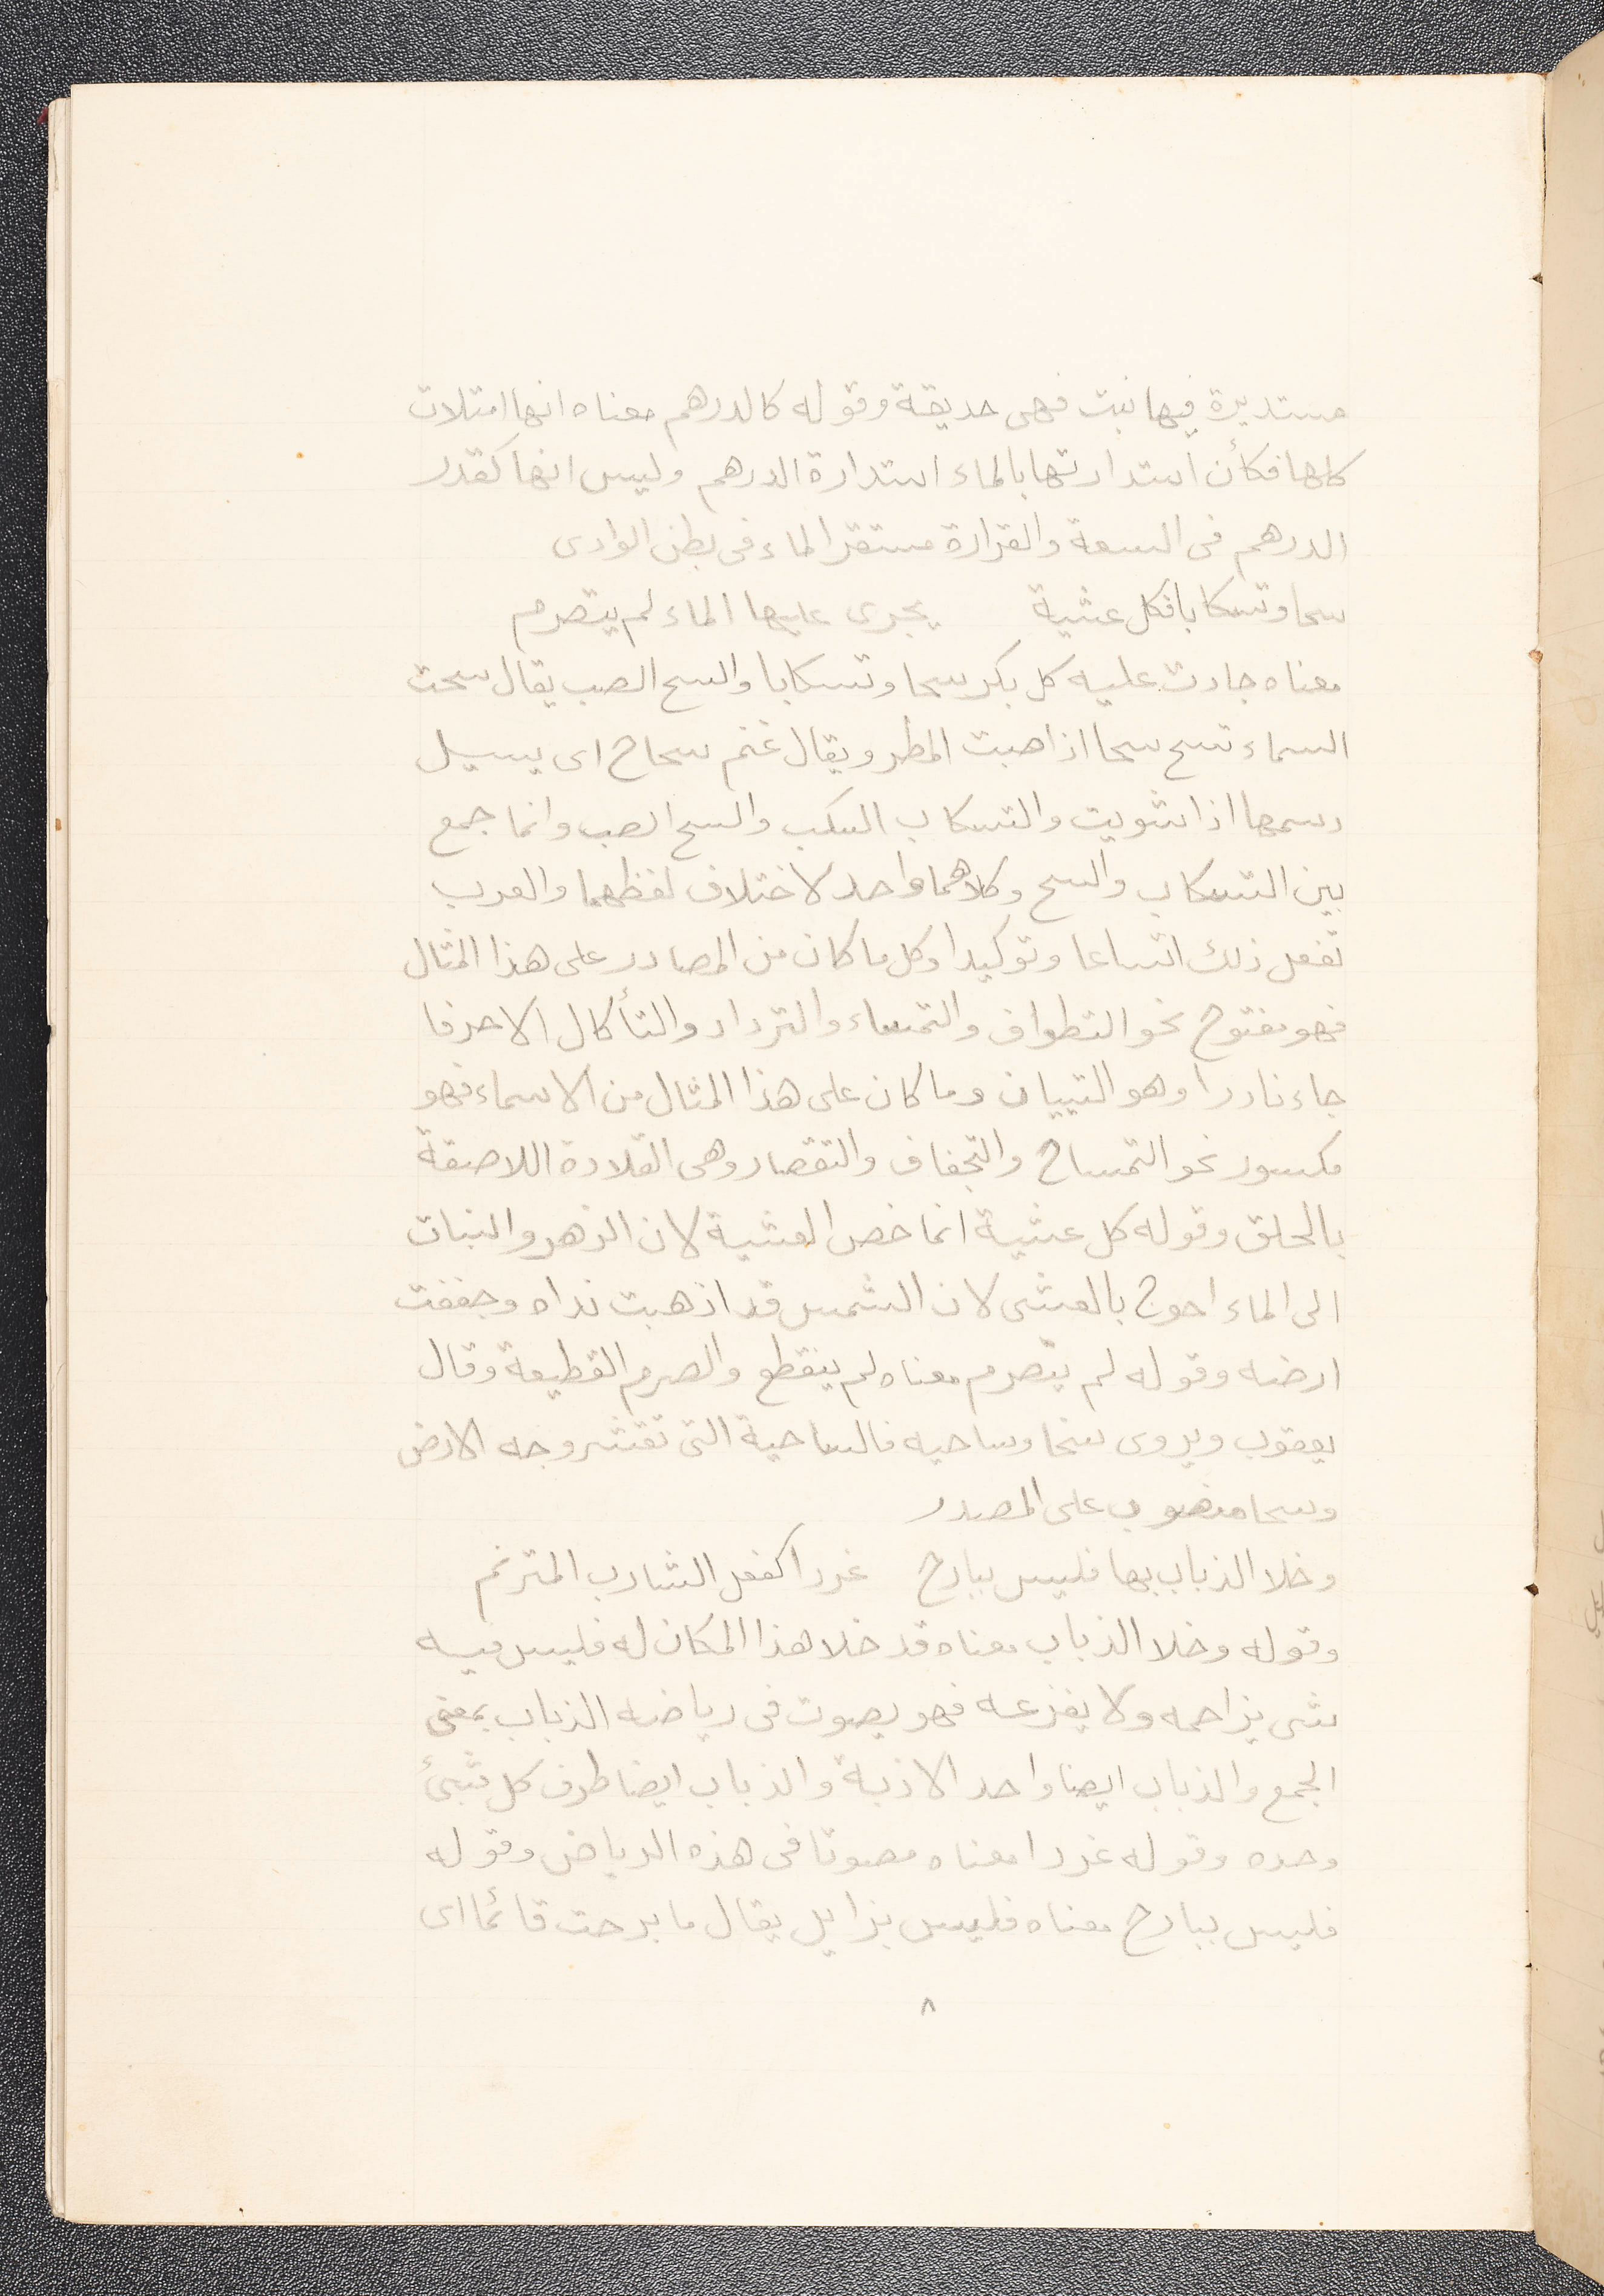 مستديرة فيها نبت فهى حديقة وقوله كالدرهم معناه انها امتلات
كلها فكأن استدارتها بالماء استدارة الدرهم وليس انها كقدر
الدرهم فى السعة والقرارة مستقر الماء فى بطن الوادى
سحا وتسكابا فكل عشية يجرى عليها الماء لم يتصرم
معناه جادت عليه كل بكر سحا وتسكابا والسح الصب يقال سحت
السماء تسح سحا اذا صبت المطر ويقال غنم سحاح اى يسيل
دسمها اذا شويت والتسكاب السكب والسح الصب وانما جمع
بين التسكاب والسح وكلاهما واحد لاختلاف لفظهما والعرب
تفعل ذلك اتساعا وتوكيدا وكل ما كان من المصادر على هذا المثال
فهو مفتوح نحو التطواف والتمساء والترداد والتأكال الا حرفا
جاء نادرا وهو التبيان وما كان على هذا المثال من الاسماء فهو
مكسور نحو التمساح والتجفاف والتقصار وهى القلادة اللاصقة
بالحلق وقوله كل عشية انما خص العشية لان الزهر والنبات
الى الماء احوج بالعشى لان الشمس قد اذهبت نداه وجففت
ارضه وقوله لم يتصرم معناه لم ينقطع والصرم القطيعة وقال
يعقوب ويروى سحا وساحيه فالساحية التى تقشر وجه الارض
وسحا منصوب على المصدر
وخلا الذباب بها فليس ببارح غردا كفعل الشارب المترنم
وقوله وخلا الذباب معناه قد خلا هذا المكان له فليس فيه
شى يزاحمه ولا يفزعه فهو يصوت فى رياضه الذباب بمعنى
الجمع والذباب ايضا واحد الاذبة والذباب ايضا طرف كل شىئ
وحده وقوله غردا معناه مصوتا فى هذه الرياض وقوله
فليس ببارح معناه فليس بزايل يقال ما برحت قائما اى
٨